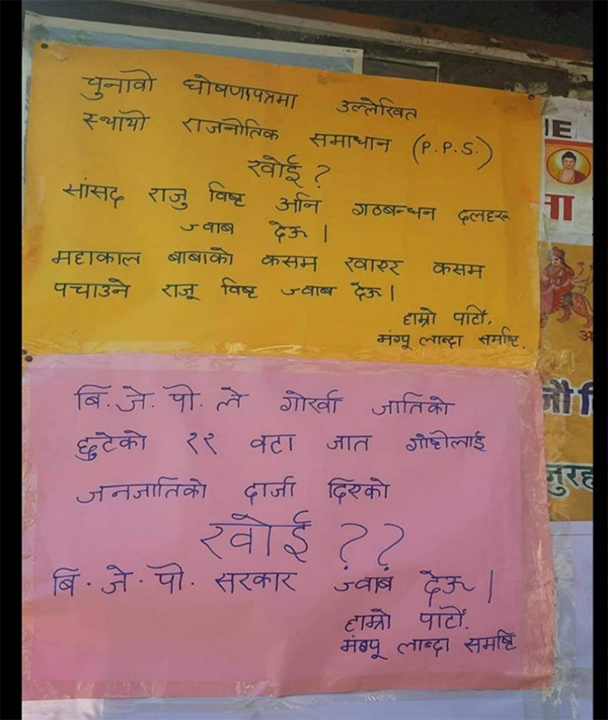 चुनावी घोषणापत्रमा उल्लेखित
स्थायी राजनीतिक समाधान (P.P.S.)
खोई ?
सांसद राजु विष्ट अनि गठबन्धन दलहरू
ज्वाब देऊ |
महाकाल बाबाको कसम खाएर कसम
पचाउने राजू विष्ट ज्वाब देऊ |
हाम्रो पार्टी,
मंग्पू लाब्दा समष्टि,
बि. जे. पी. ले गोर्खा जातिको
छुटेको ११ वटा जात गोष्ठीलाई
जनजातिको दार्जा दिएको
खोई ??
बि. जे. पी. सरकार ज्वाब देऊ |
हाम्रो पार्टी,
मंग्पू लाब्दा समष्टि